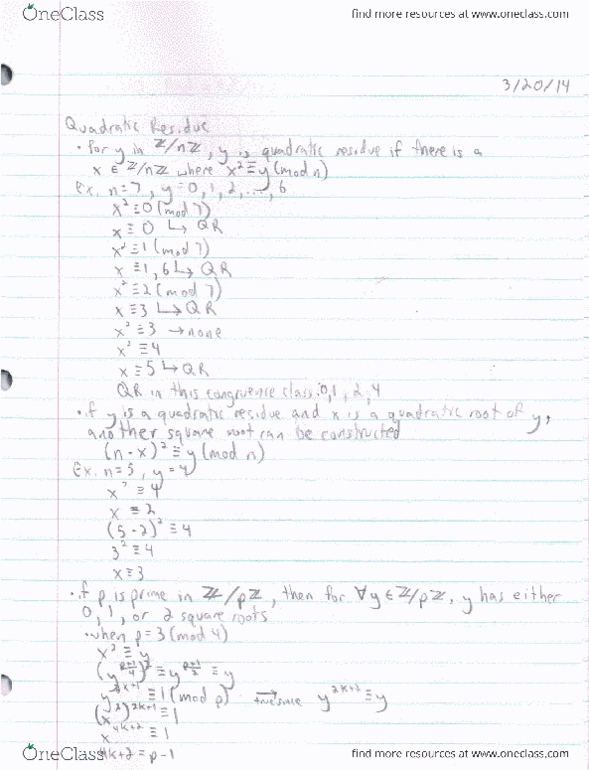 OneClass
find more resources at www.oneclass.com
3/20/14
Quadratic Residue
• For y in ℤ/nℤ, y is quadratic residue if there is a
x ∈ ℤ/nℤ where x² ≡ y (mod n)
Ex. n=7, y=0,1,2,...,6
x² ≡ 0 (mod 7)
x ≡ 0 ↳ QR
x² ≡ 1 (mod 7)
x ≡ 1, 6 ↳ QR
x² ≡ 2 (mod 7)
x ≡ 3 ↳ QR
x² ≡ 3 → none
x² ≡ 4
x ≡ 5 ↳ QR
QR in this congruence class: 0, 1, 2, 4
• if y is a quadratic residue and x is a quadratic root of y,
another square root can be constructed
(n-x)² ≡ y (mod n)
Ex. n=5, y=4
x² ≡ 4
x = 2
(5-2)² ≡ 4
3² ≡ 4
x ≡ 3
• if p is prime in ℤ/pℤ, then for ∀y ∈ ℤ/pℤ, y has either
0, 1, or 2 square roots
• when p = 3 (mod 4)
x² ≡ y
(y^((p+1)/4))² ≡ y^((p+1)/2) ≡ y
y^(2k+1) ≡ 1 (mod p) → true since y^(2k+2) ≡ y
(x²)^(2k+1) ≡ 1
x^(4k+2) ≡ 1
4k+2 = p-1
OneClass
find more resources at www.oneclass.com